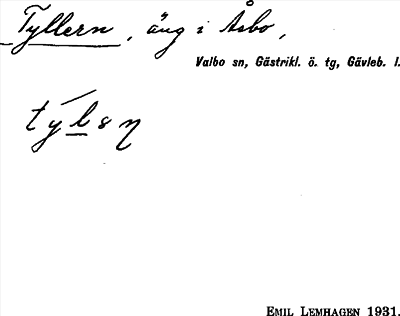 Tyllern, äng i Åsbo,
Valbo sn, Gästrikl. ö. tg, Gävleb. l.
týlsn
EMIL LEMHAGEN 1931.